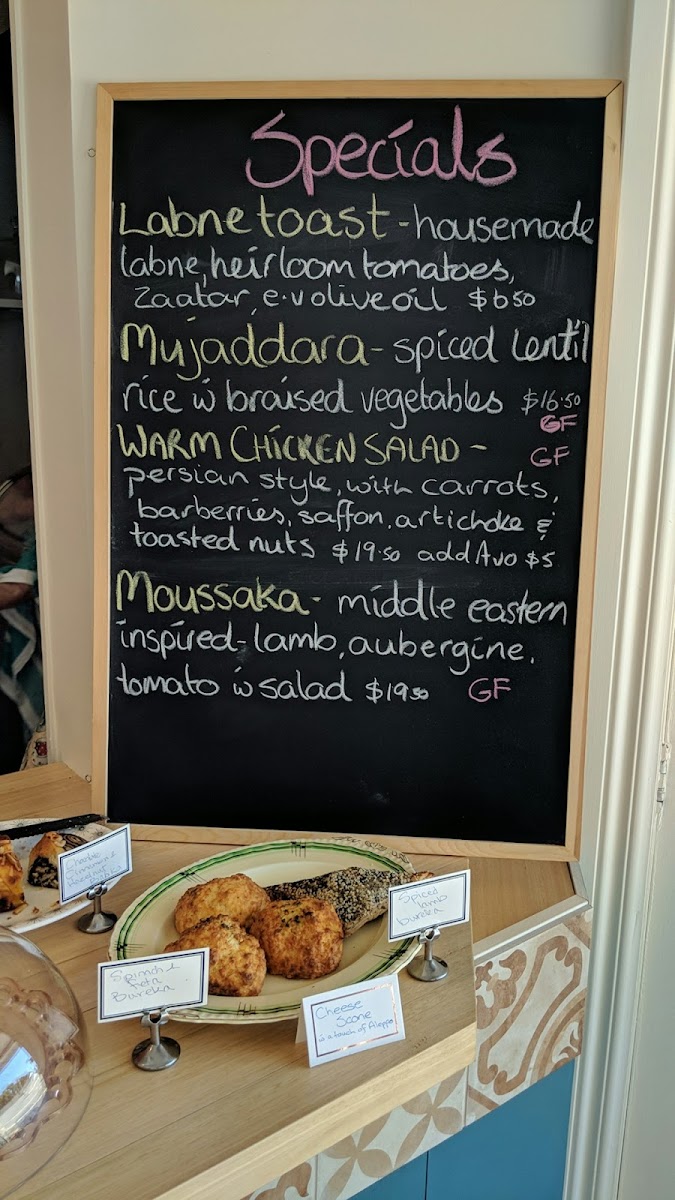 Specials
Labne toast - housemade
labne, heirloom tomatoes,
Zaatar, e.v olive oil $6.50
Mujaddara - spiced lentil
rice w braised vegetables $16.50
GF
WARM CHICKEN SALAD - GF
persian style, with carrots,
barberries, saffon, artichoke &
toasted nuts $19.50 add Avo $5
Moussaka - middle eastern
inspired - lamb, aubergine,
tomato w salad $19.50 GF
Cinnamon &
Spiced
lamb
bureka
Spinach &
feta
Bureka
Cheese
Scone
w a touch of Aleppo